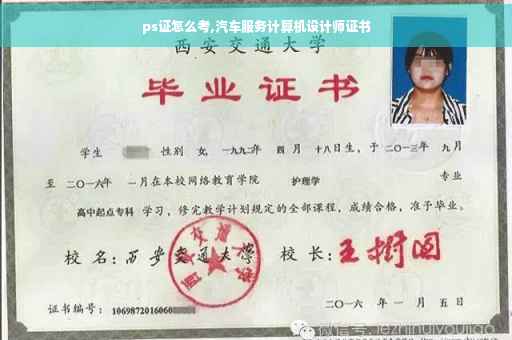 ps证怎么考,汽车服务计算机设计师证书
西安交通大学
毕业证书
学生 性别 女, 一九九二年 四 月 十八日生, 于 二〇一三年 九月
至 二〇一六年 一月在本校网络教育学院 护理学 专业
高中起点专科 学习, 修完教学计划规定的全部课程, 成绩合格, 准予毕业。
校 名: 西安交通大学 校 长: 王树国
西安交通大学
证书编号: 1069872016060
二〇一六 年 一 月 五 日
微信号: jezhinuiyoujiao